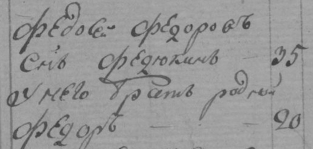 Федосей Федоровъ
Снъ Федюкинъ — 35
У него братъ родный
Федоръ — — 20